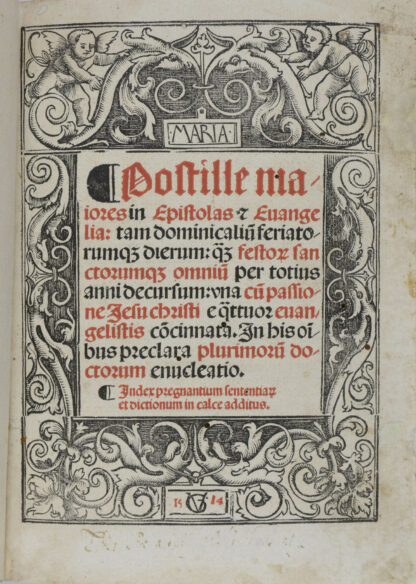 MARIA
¶ Postille ma/
iores in Epistolas ⁊ Euange
lia: tam dominicaliũ feriato⸗
rumqꝫ dierum: qꝫ̃ festoꝝ san
ctorumqꝫ omniũ per totius
anni decursum: vna cũ passio⸗
ne Jesu christi e q̃ttuor euan⸗
gelistis cõcinnata. In his oĩ
bus preclara plurimorũ do⸗
ctorum enucleatio.
¶ Index pregnantium sententiaꝝ
et dictionum in calce additus.
15 VG 14